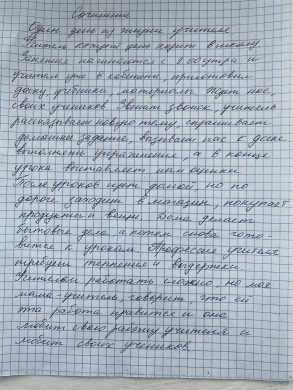 Сочинение
Один день из жизни учителя
Учитель каждый день ходит в школу.
Занятия начинаются с 8:00 утра и
учитель уже в кабинете, приготовил
доску, учебники, материалы. Ждет нас,
своих учеников. Звенит звонок, учитель
рассказывает новую тему, спрашивает
домашнее задание, вызывает нас к доске
выполнять упражнение, а в конце
урока выставляет нам оценки.
После уроков идет домой, но по
дороге заходит в магазин, покупает
продукты и вещи. Дома делает
бытовые дела, а потом снова гото-
вится к урокам. Профессия учителя
требует терпения и выдержки.
Учителем работать сложно, но моя
мама-учитель, говорит, что ей
эта работа нравится и она
любит свою работу учителя и
любит своих учеников.